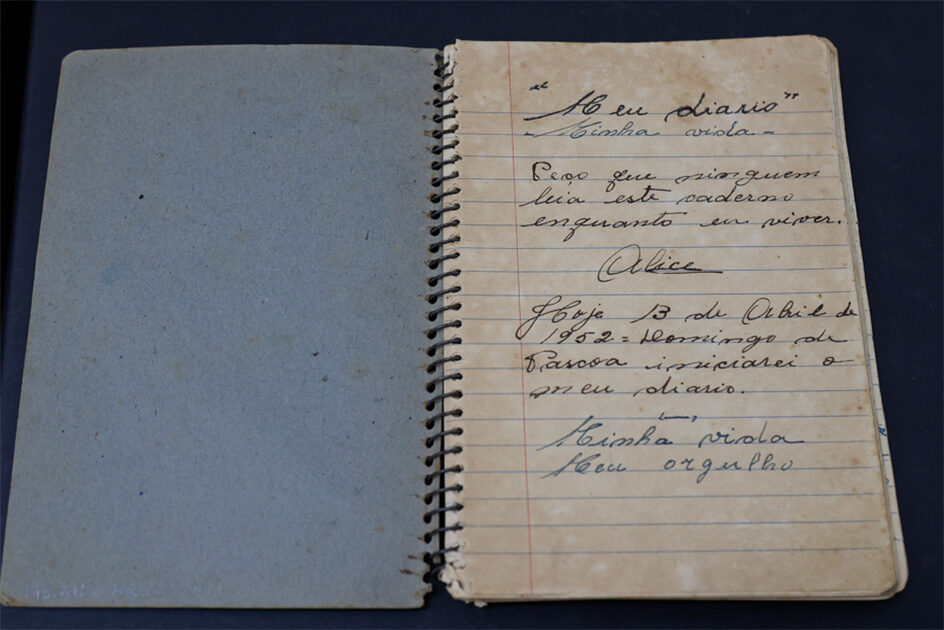 "Meu diario"
- Minha vida -
Peço que ninguem
leia este caderno
enquanto eu viver.
Alice
Hoje 13 de Abril de
1952 = Domingo de
Pascoa iniciarei o
meu diario.
Minha vida
Meu orgulho